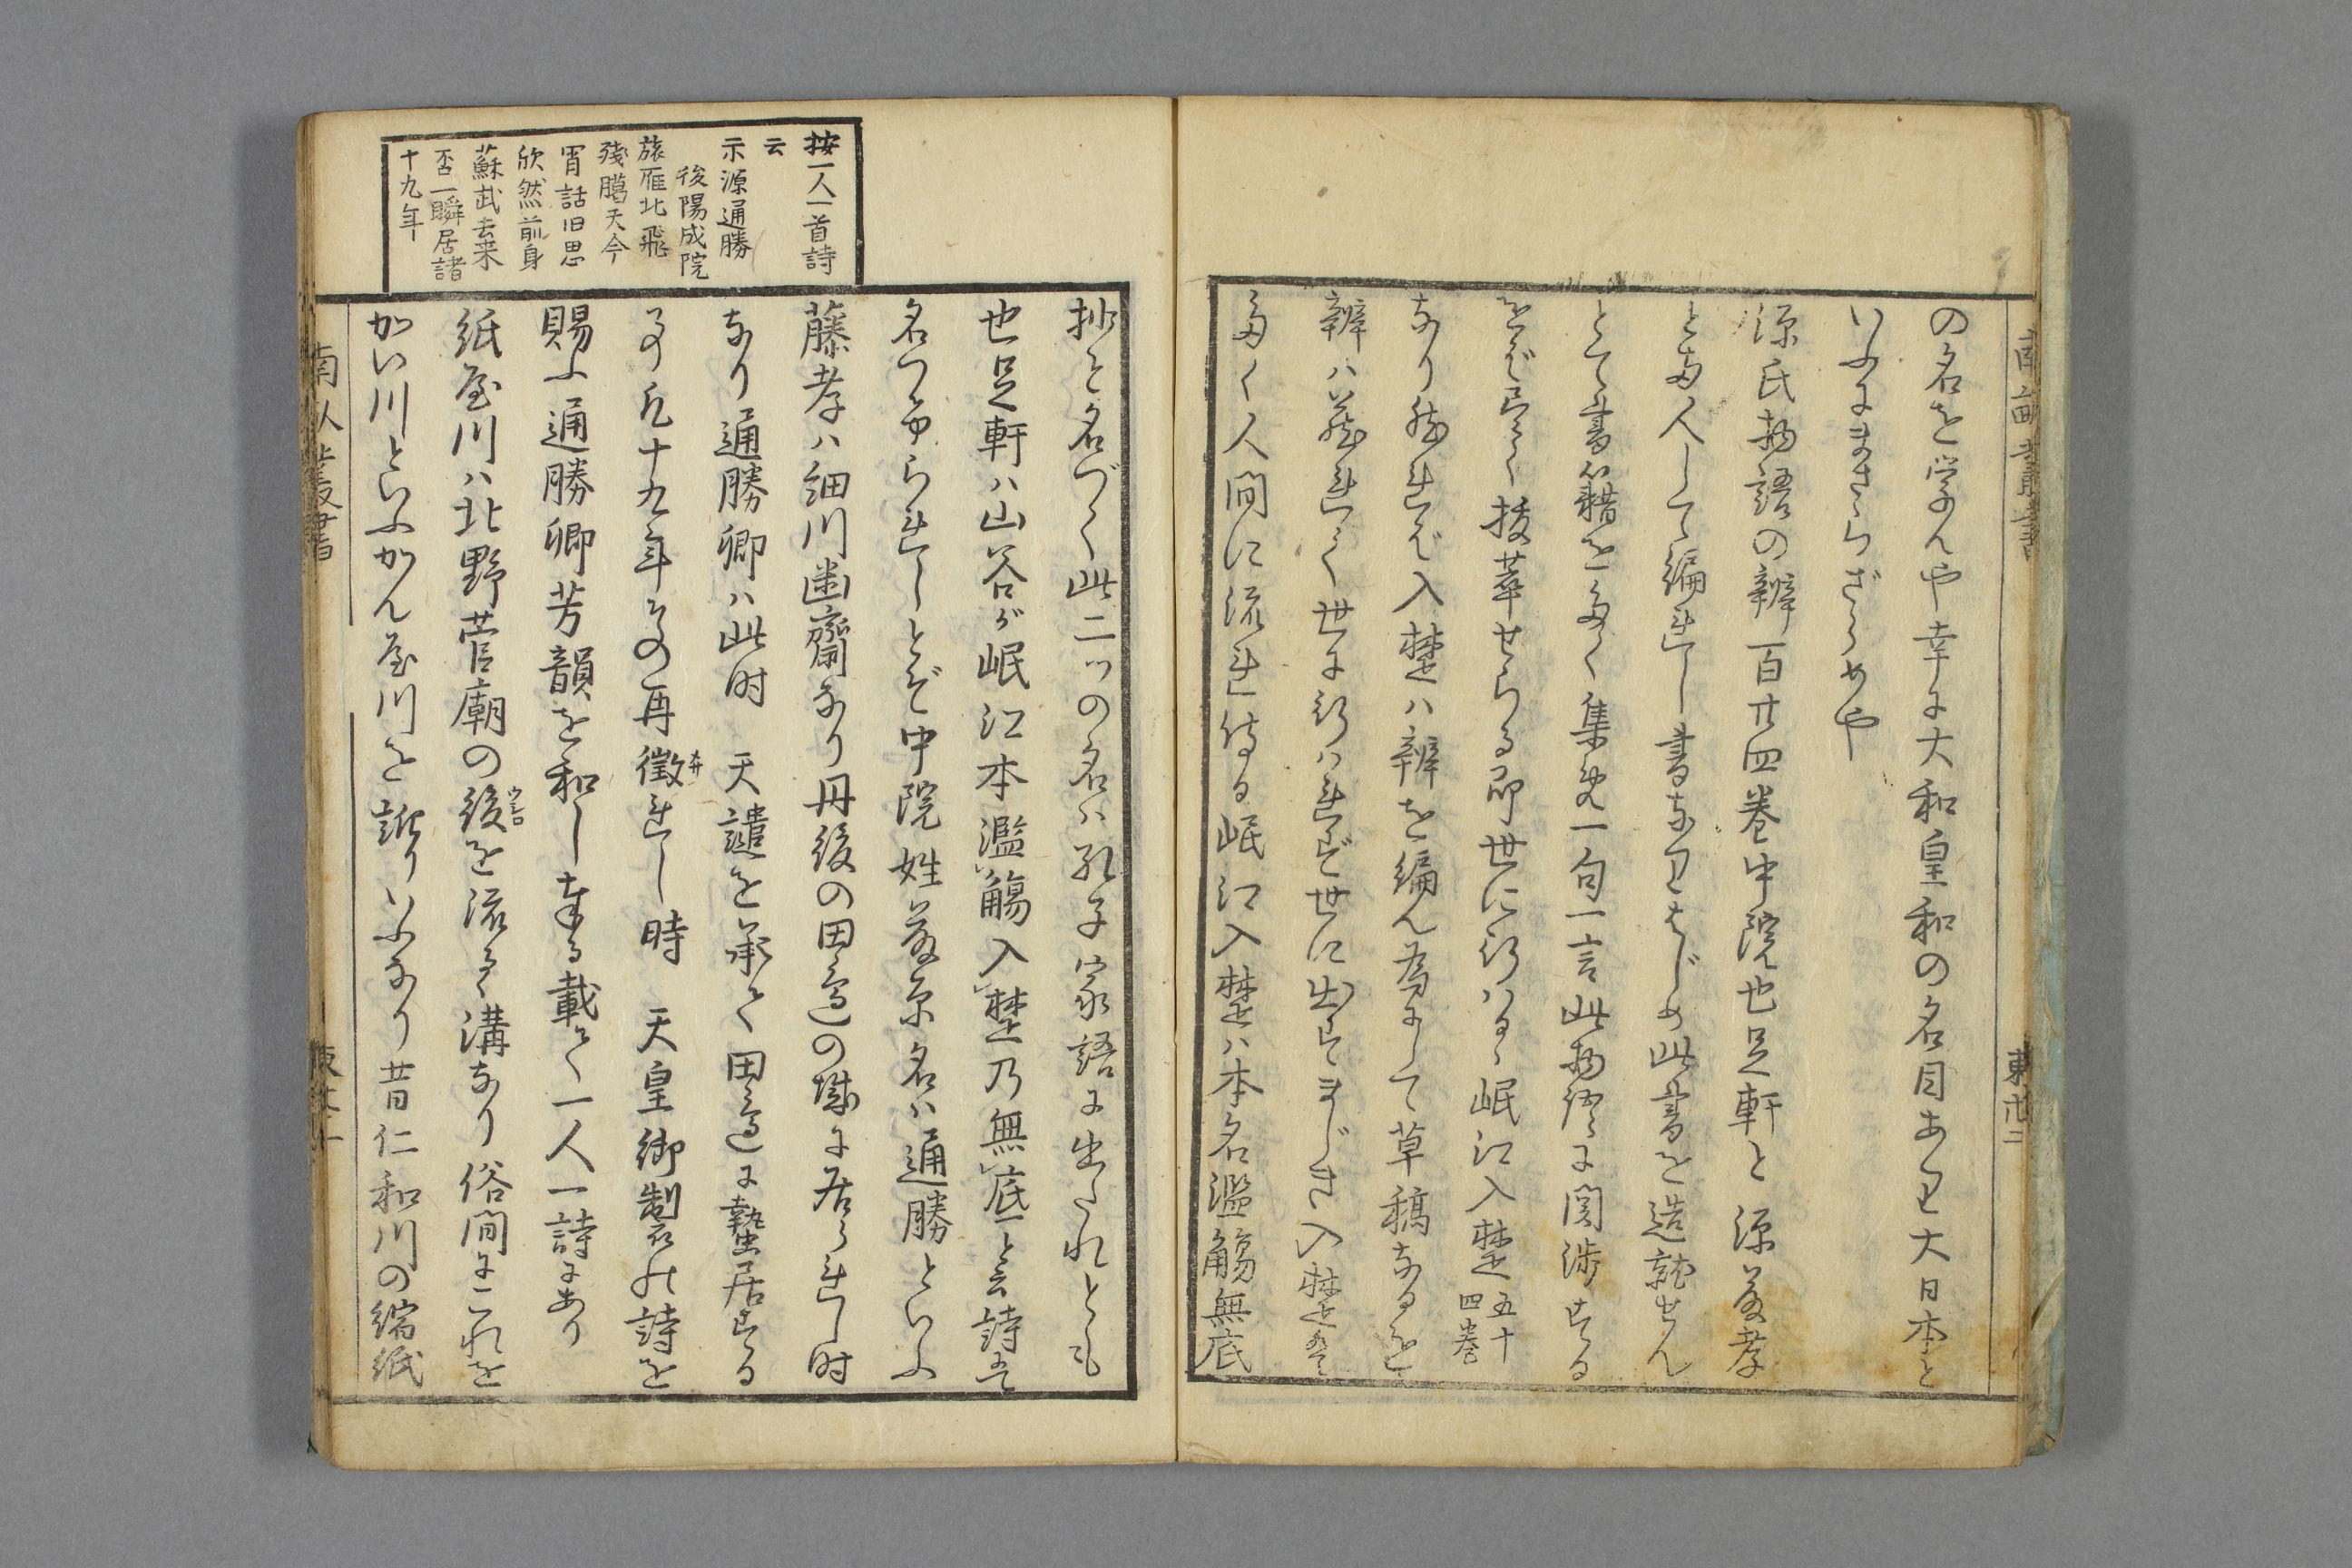 の名を学んや幸に大和皇和の名目あり大日本と
いふにまさらざらめや
源氏物語の辨一百廿四巻中院也足軒と源藤孝
と両人して編れし書なりはじめ此書を造詣せん
とて書籍を多く集め一句一言此物語に関渉する
をば尽く抜萃せらる即世に行はるゝ岷江入楚五十四巻
なり然れば入楚は辨を編ん為にして草稿なるを
辨は蔵れて世に行はれず世に出すまじき入楚
多く人間に流れ侍る岷江入楚は本名濫觴無底
抄と名づく此二ツの名は孔子家語に出たれとも
也足軒は山谷が岷江本濫觴入楚乃無底と云詩にて
名つけられしとぞ中院姓は藤原名は通勝といふ
藤孝は細川幽齋なり丹後の田邊の城に居られし時
なり通勝卿は此時 天譴を承て田邊に蟄居する
事凡十九年その再徴れし時 天皇御製の詩を
賜ふ通勝卿芳韻を和し奉る載て一人一詩にあり
紙屋川は北野菅廟の後を流るゝ溝なり俗間にこれを
かい川といふかん屋川を訛りいふなり昔仁和川の編紙
按一人一首詩
云
示源通勝
後陽成院
旅雁北飛
殘臈天今
宵話旧思
欣然前身
蘇武去来
否一瞬居諸
十九年